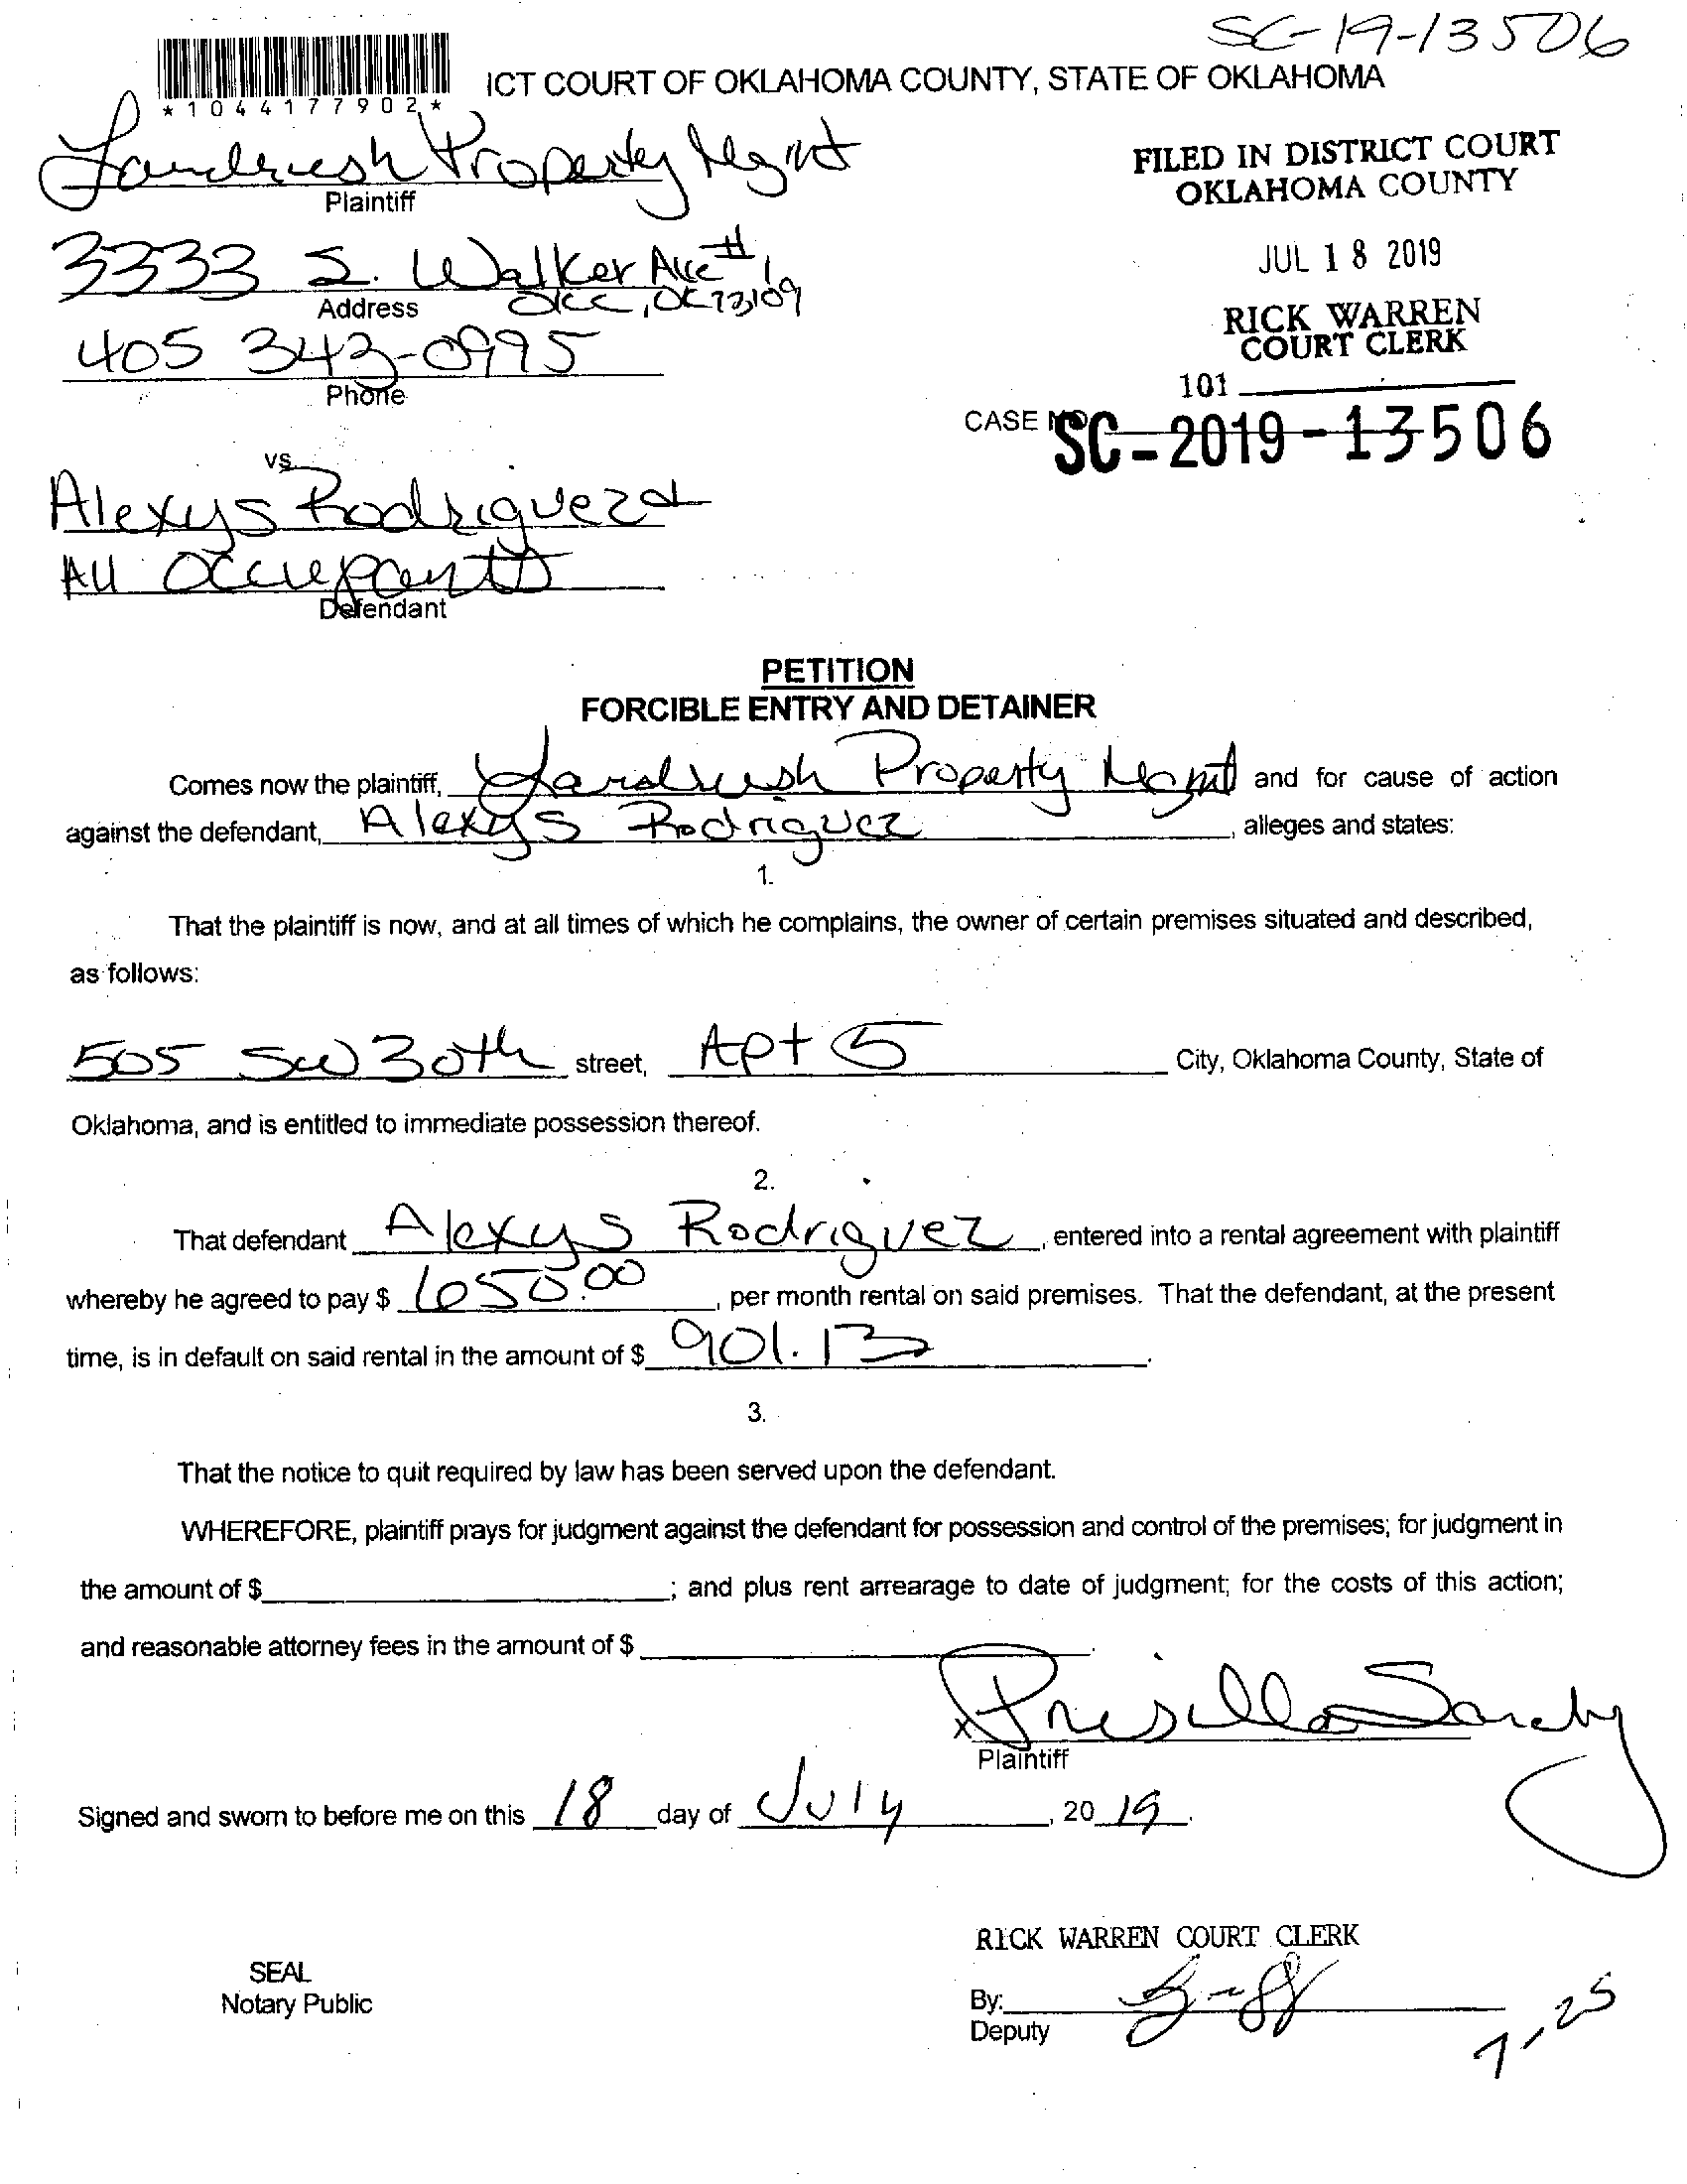 SC-19-13506
ICT COURT OF OKLAHOMA COUNTY, STATE OF OKLAHOMA
*1044177902*
Landrush Property Mgmt
Plaintiff
FILED IN DISTRICT COURT
OKLAHOMA COUNTY
3333 S. Walker Ave #1
OKC, OK 73109
Address
JUL 18 2019
405 343-0995
Phone
RICK WARREN
COURT CLERK
101
CASE NO. SC-2019-13506
vs.
Alexys Rodriguez &
All Occupants
Defendant
PETITION
FORCIBLE ENTRY AND DETAINER
Comes now the plaintiff, Landrush Property Mgmt and for cause of action
against the defendant, Alexys Rodriguez, alleges and states:
1.
That the plaintiff is now, and at all times of which he complains, the owner of certain premises situated and described,
as follows:
505 SW 30th street, Apt 5 City, Oklahoma County, State of
Oklahoma, and is entitled to immediate possession thereof.
2.
That defendant Alexys Rodriguez, entered into a rental agreement with plaintiff
whereby he agreed to pay $ 650.00, per month rental on said premises. That the defendant, at the present
time, is in default on said rental in the amount of $ 901.13.
3.
That the notice to quit required by law has been served upon the defendant.
WHEREFORE, plaintiff prays for judgment against the defendant for possession and control of the premises; for judgment in
the amount of $ ; and plus rent arrearage to date of judgment; for the costs of this action;
and reasonable attorney fees in the amount of $ .
x Prisilla Sandy
Plaintiff
Signed and sworn to before me on this 18 day of July, 2019.
RICK WARREN COURT CLERK
SEAL
Notary Public
By:
Deputy
7,25